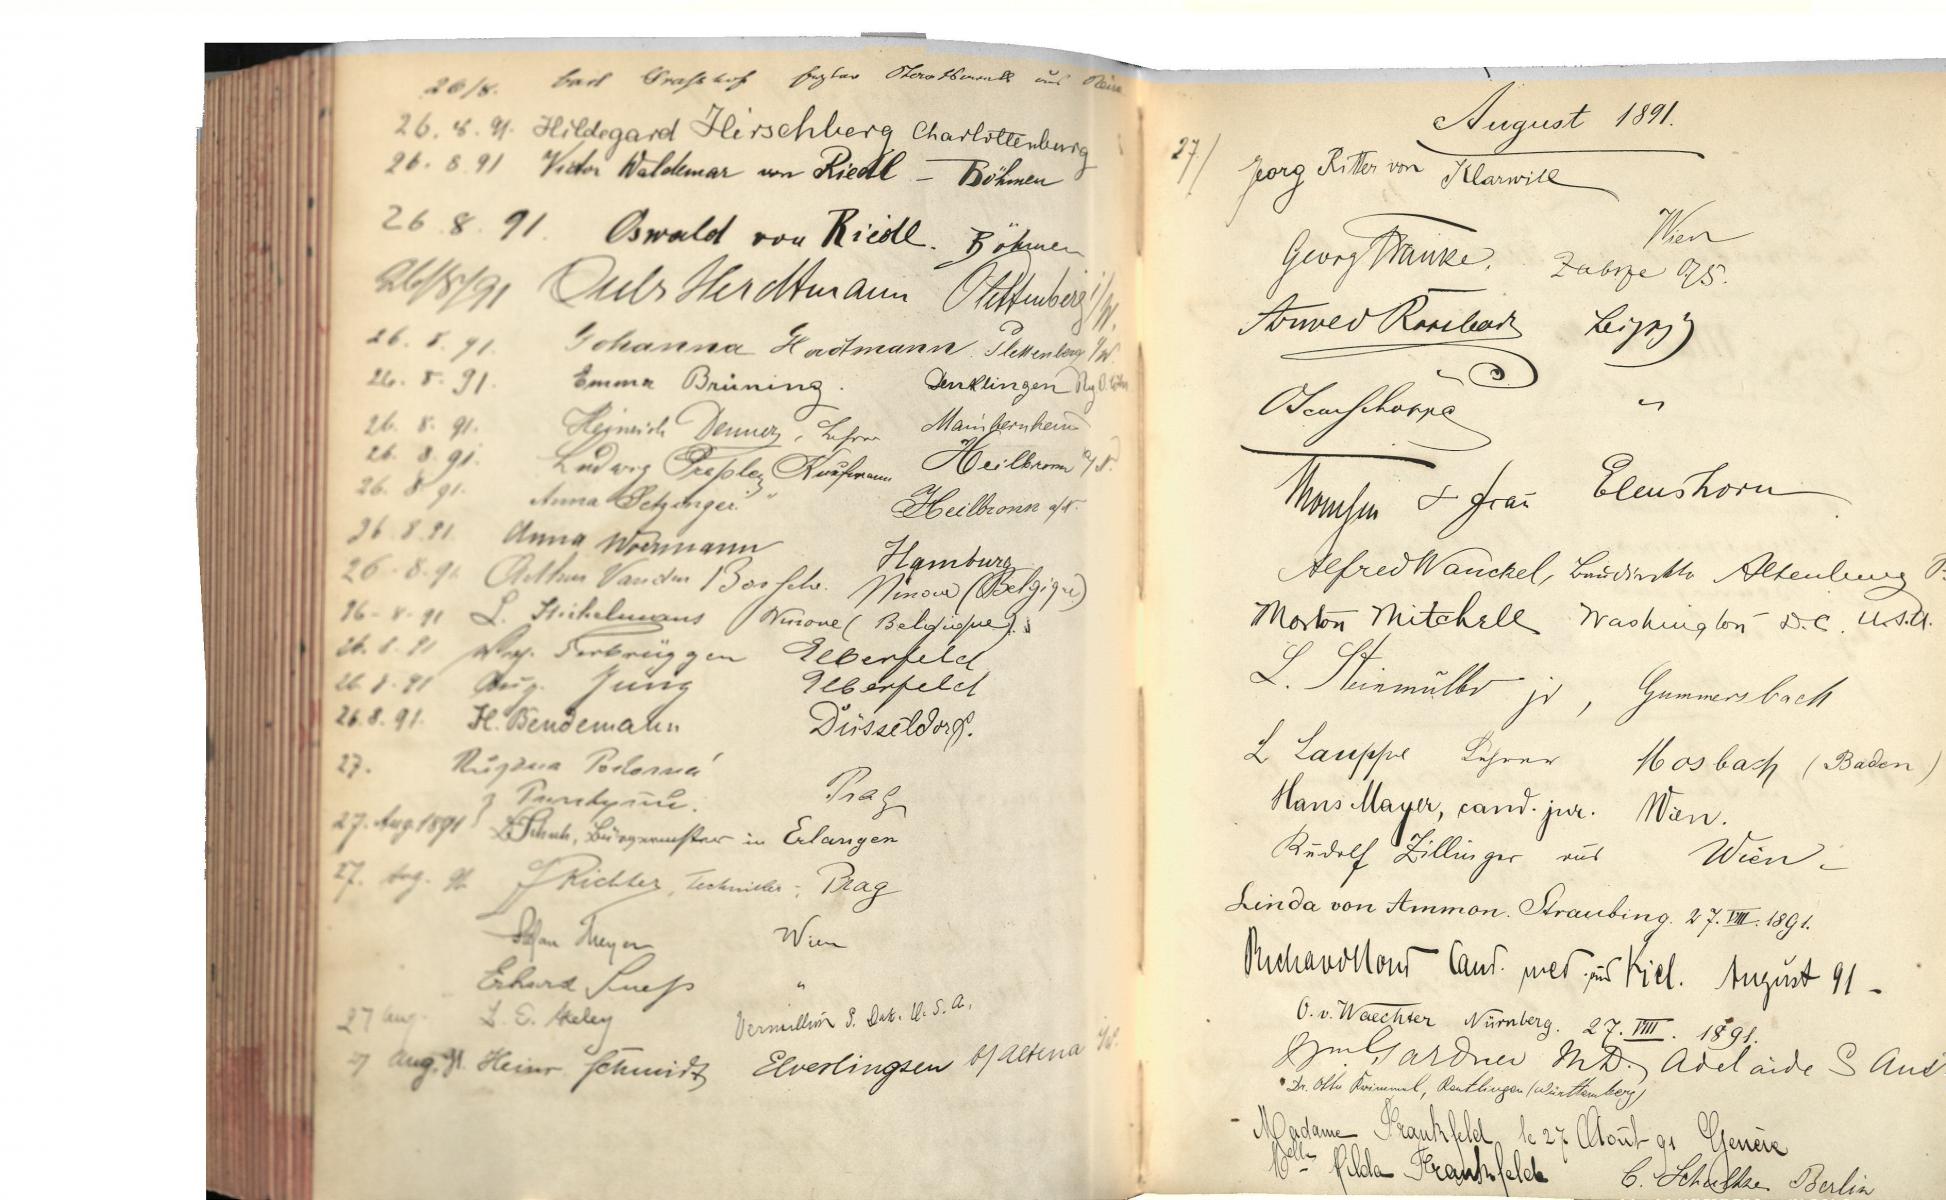 26/8.
26.8.91. Hildegard Hirschberg Charlottenburg
26.8.91 Victor Waldemar von Riedl – Böhmen
26.8.91. Oswald von Riedl. Böhmen
26/8/91 Herdtmann Plettenberg i/W.
26.8.91. Johanna Herdtmann. Plettenberg i/W.
26.8.91. Emma Brüning. Denklingen
26.8.91. Heinrich Lehrer Mainbernheim
26.8.91. Ludwig Kaufmann Heilbronn a/N.
26.8.91. Anna " Heilbronn a/N.
26.8.91. Anna Woermann Hamburg
26-8.91 Arthur Vanden Bossche. Ninove (Belgique)
26-8-91 L. Ninove (Belgique).
26.8.91 Terbrüggen Elberfeld
26.8.91 Aug. Jung Elberfeld
26.8.91. H. Bendemann Düsseldorf.
27. Růžena Podorná
Prag
27. Aug. 1891 Bürgermeister in Erlangen
27. Aug. 91 Richter, Techniker, Prag
Stefan Meyer Wien
Erhard Sueß "
27 Aug. L. E. Akeley Vermillion S. Dak. U.S.A.
27 Aug. 91. Heinr. Schmidt Elverlingsen b/Altena i/W.
August 1891.
27/ Georg Ritter von Klarwill
Wien
Georg Franke. Zabrze O/S.
Arwed Rossbach Leipzig
Oscar Schoppe "
Thomsen & Frau Elmshorn
Alfred Wanckel, Baudirektor Altenburg
Morton Mitchell Washington D.C. U.S.A.
L. Steinmüller jr, Gummersbach
L Lauppe Lehrer Mosbach (Baden)
Hans Mayer, cand. jur. Wien.
Rudolf Zillinger aus Wien.
Linda von Ammon. Straubing. 27.VIII.1891.
Richard Cand. med. aus Kiel. August 91 –
O. v. Waechter Nürnberg. 27.VIII. 1891.
Wm Gardner M.D., Adelaide S Aus
Dr. Otto Krimmel, Reutlingen (Württemberg)
Madame Frankfeld le 27 Août 91 Genève
Melle Hilda Frankfeld
C. Schultze Berlin